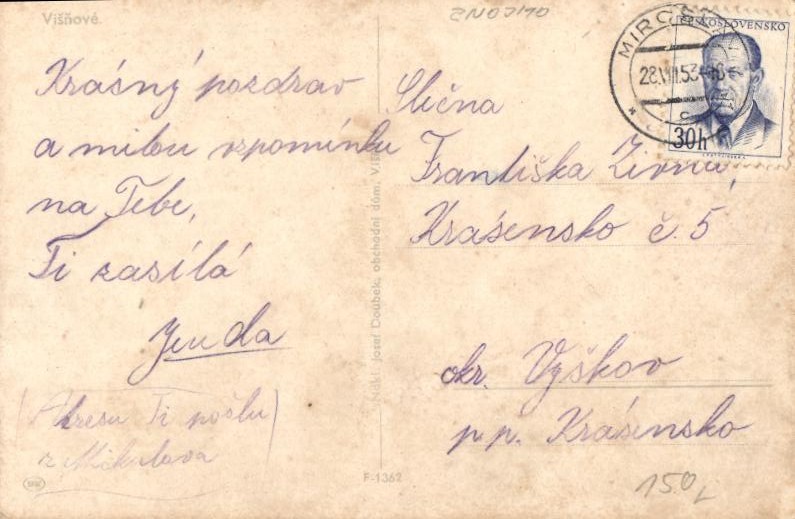 Višňové.
ZNOJMO
Krásný pozdrav
a milou vzpomínku
na Tebe,
Ti zasílá
Jenda
(Adresu Ti pošlu)
z Mikulova
Nákl. Josef Doubek, obchodní dům,
F-1362
MIROS
28.VII.53-18
c
ČESKOSLOVENSKO
30h
Slečna
Františka
Krásensko č. 5
okr. Vyškov
p.p. Krásensko
150,